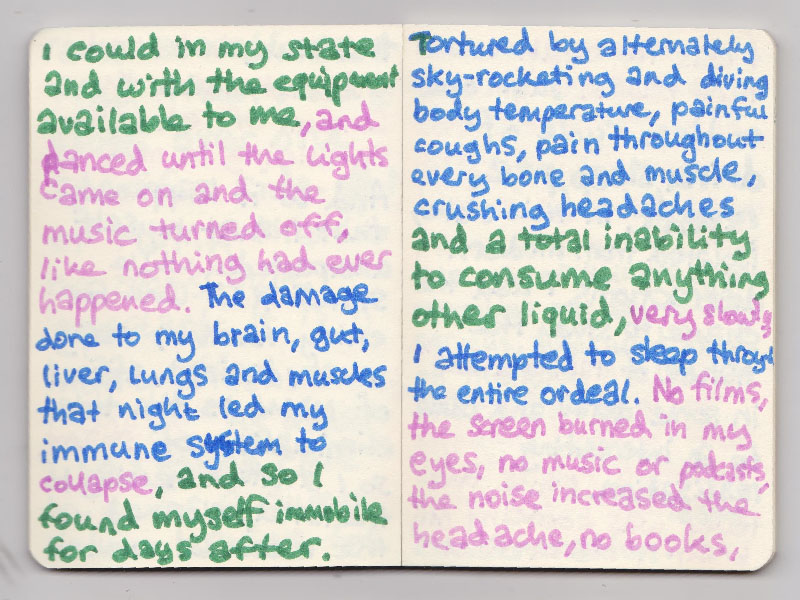 I could in my state
and with the equipment
available to me, and
danced until the lights
came on and the
music turned off,
like nothing had ever
happened. The damage
done to my brain, gut,
liver, lungs and muscles
that night led my
immune system to
collapse, and so I
found myself immobile
for days after.
Tortured by alternately
sky-rocketing and diving
body temperature, painful
coughs, pain throughout
every bone and muscle,
crushing headaches
and a total inability
to consume anything
other liquid, very slowly
I attempted to sleep through
the entire ordeal. No films,
the screen burned in my
eyes, no music or podcasts,
the noise increased the
headache, no books,